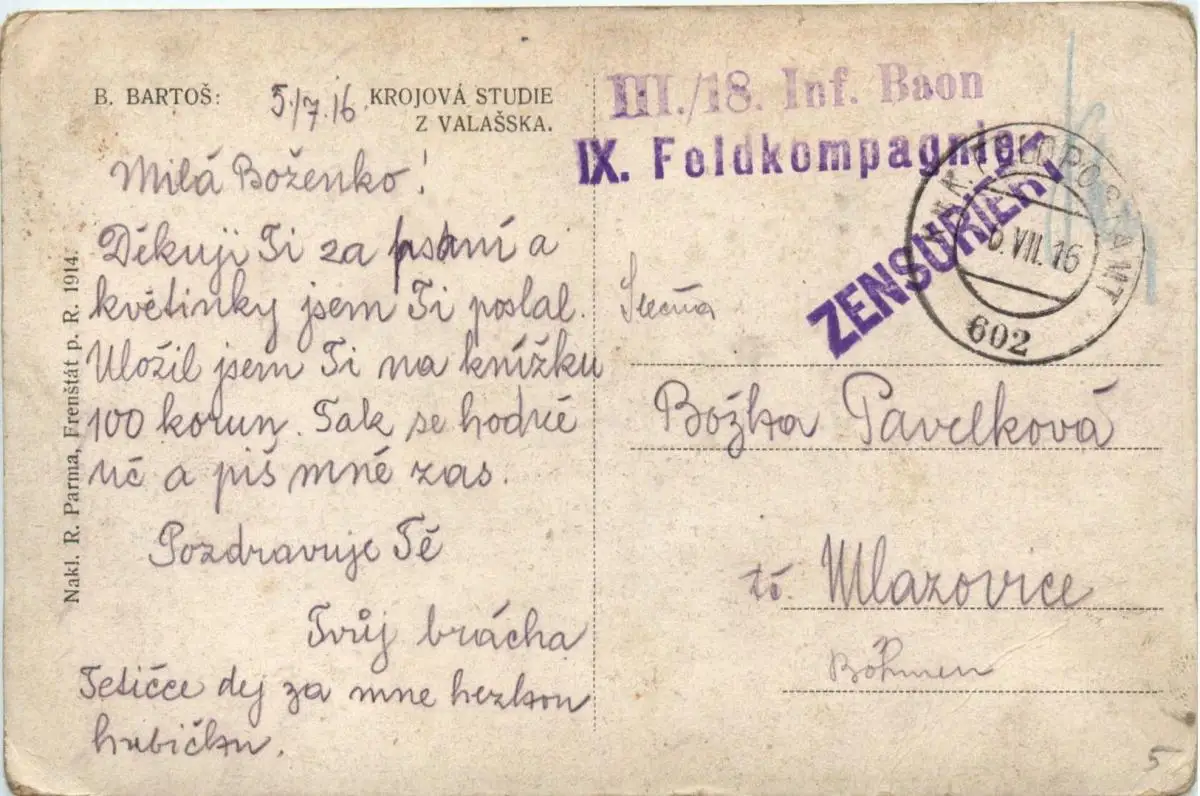 B. BARTOŠ: 5./7.16 KROJOVÁ STUDIE
Z VALAŠSKA.
Milá Boženko!
Děkuji Ti za psaní a
květinky jsem Ti poslal.
Uložil jsem Ti na knížku
100 korun. Tak se hodně
uč a piš mně zas.
Pozdravuje Tě
Tvůj brácha
Tetičce dej za mne hezkou
hubičku.
Nakl. R. Parma, Frenštát p. R. 1914.
III./18. Inf. Baon
IX. Feldkompagnie
ZENSURIERT
K.u.K. FELDPOSTAMT
6.VII.16
602
Slečna
Božka Pavelková
Mlazovice
Böhmen
5